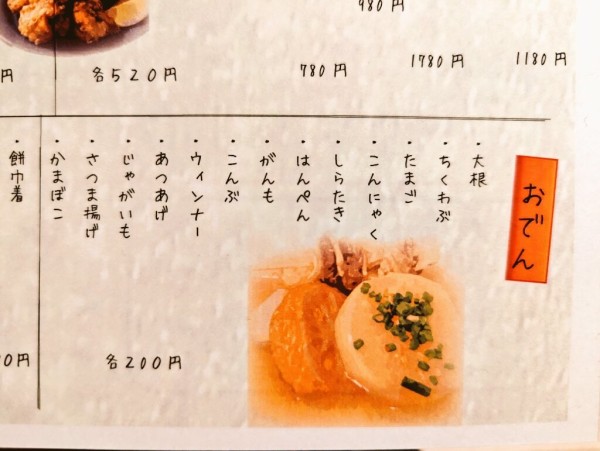 980円
円
各520円
780円
1780円
1180円
おでん
・大根
・ちくわぶ
・たまご
・こんにゃく
・しらたき
・はんぺん
・がんも
・こんぶ
・ウィンナー
・あつあげ
・じゃがいも
・さつま揚げ
・かまぼこ
各200円
・餅巾着
0円